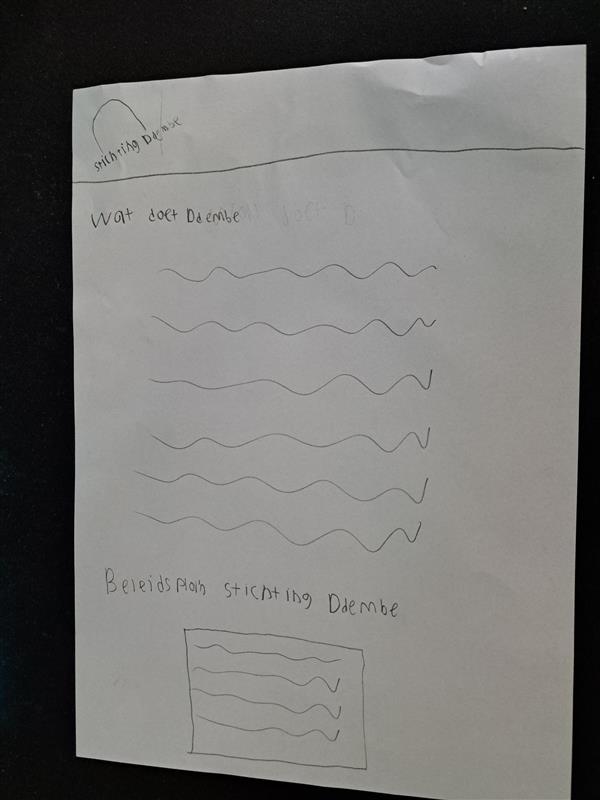 stichting Ddembe
Wat doet Ddembe
Beleidsplan stichting Ddembe